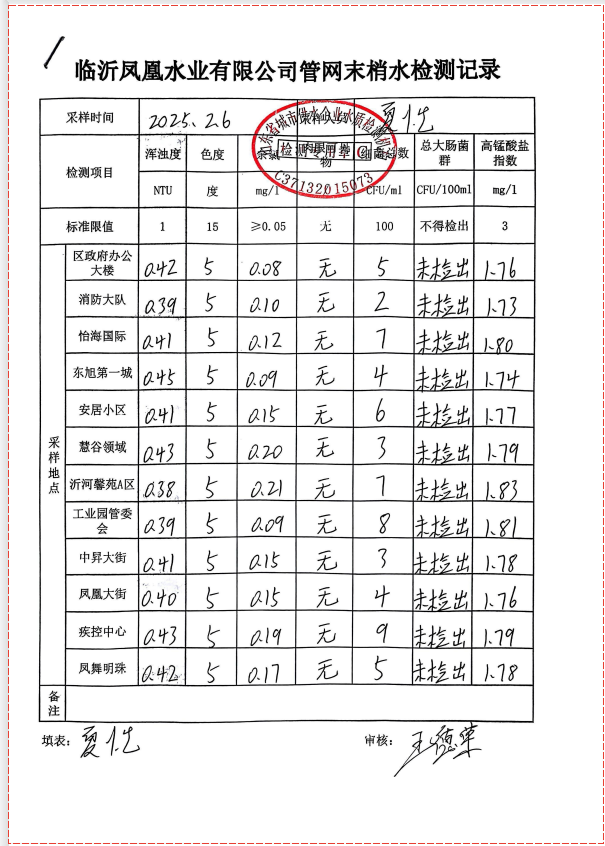 临沂凤凰水业有限公司管网末梢水检测记录
采样时间 2025.2.6 采样人员 夏
检测项目 浑浊度 色度 余氯 肉眼可见物 细菌总数 总大肠菌群 高锰酸盐指数
NTU 度 mg/l CFU/ml CFU/100ml mg/l
标准限值 1 15 ≥0.05 无 100 不得检出 3
采样地点
区政府办公大楼 0.42 5 0.08 无 5 未检出 1.76
消防大队 0.39 5 0.10 无 2 未检出 1.73
怡海国际 0.41 5 0.12 无 7 未检出 1.80
东旭第一城 0.45 5 0.09 无 4 未检出 1.74
安居小区 0.41 5 0.15 无 6 未检出 1.77
慧谷领域 0.43 5 0.20 无 3 未检出 1.79
沂河馨苑A区 0.38 5 0.21 无 7 未检出 1.83
工业园管委会 0.39 5 0.09 无 8 未检出 1.81
中昇大街 0.41 5 0.15 无 3 未检出 1.78
凤凰大街 0.40 5 0.15 无 4 未检出 1.76
疾控中心 0.43 5 0.19 无 9 未检出 1.79
凤舞明珠 0.42 5 0.17 无 5 未检出 1.78
备注
填表: 夏 审核: 王德荣
山东省城市供水企业水质检测
检测专用章
C37132015073